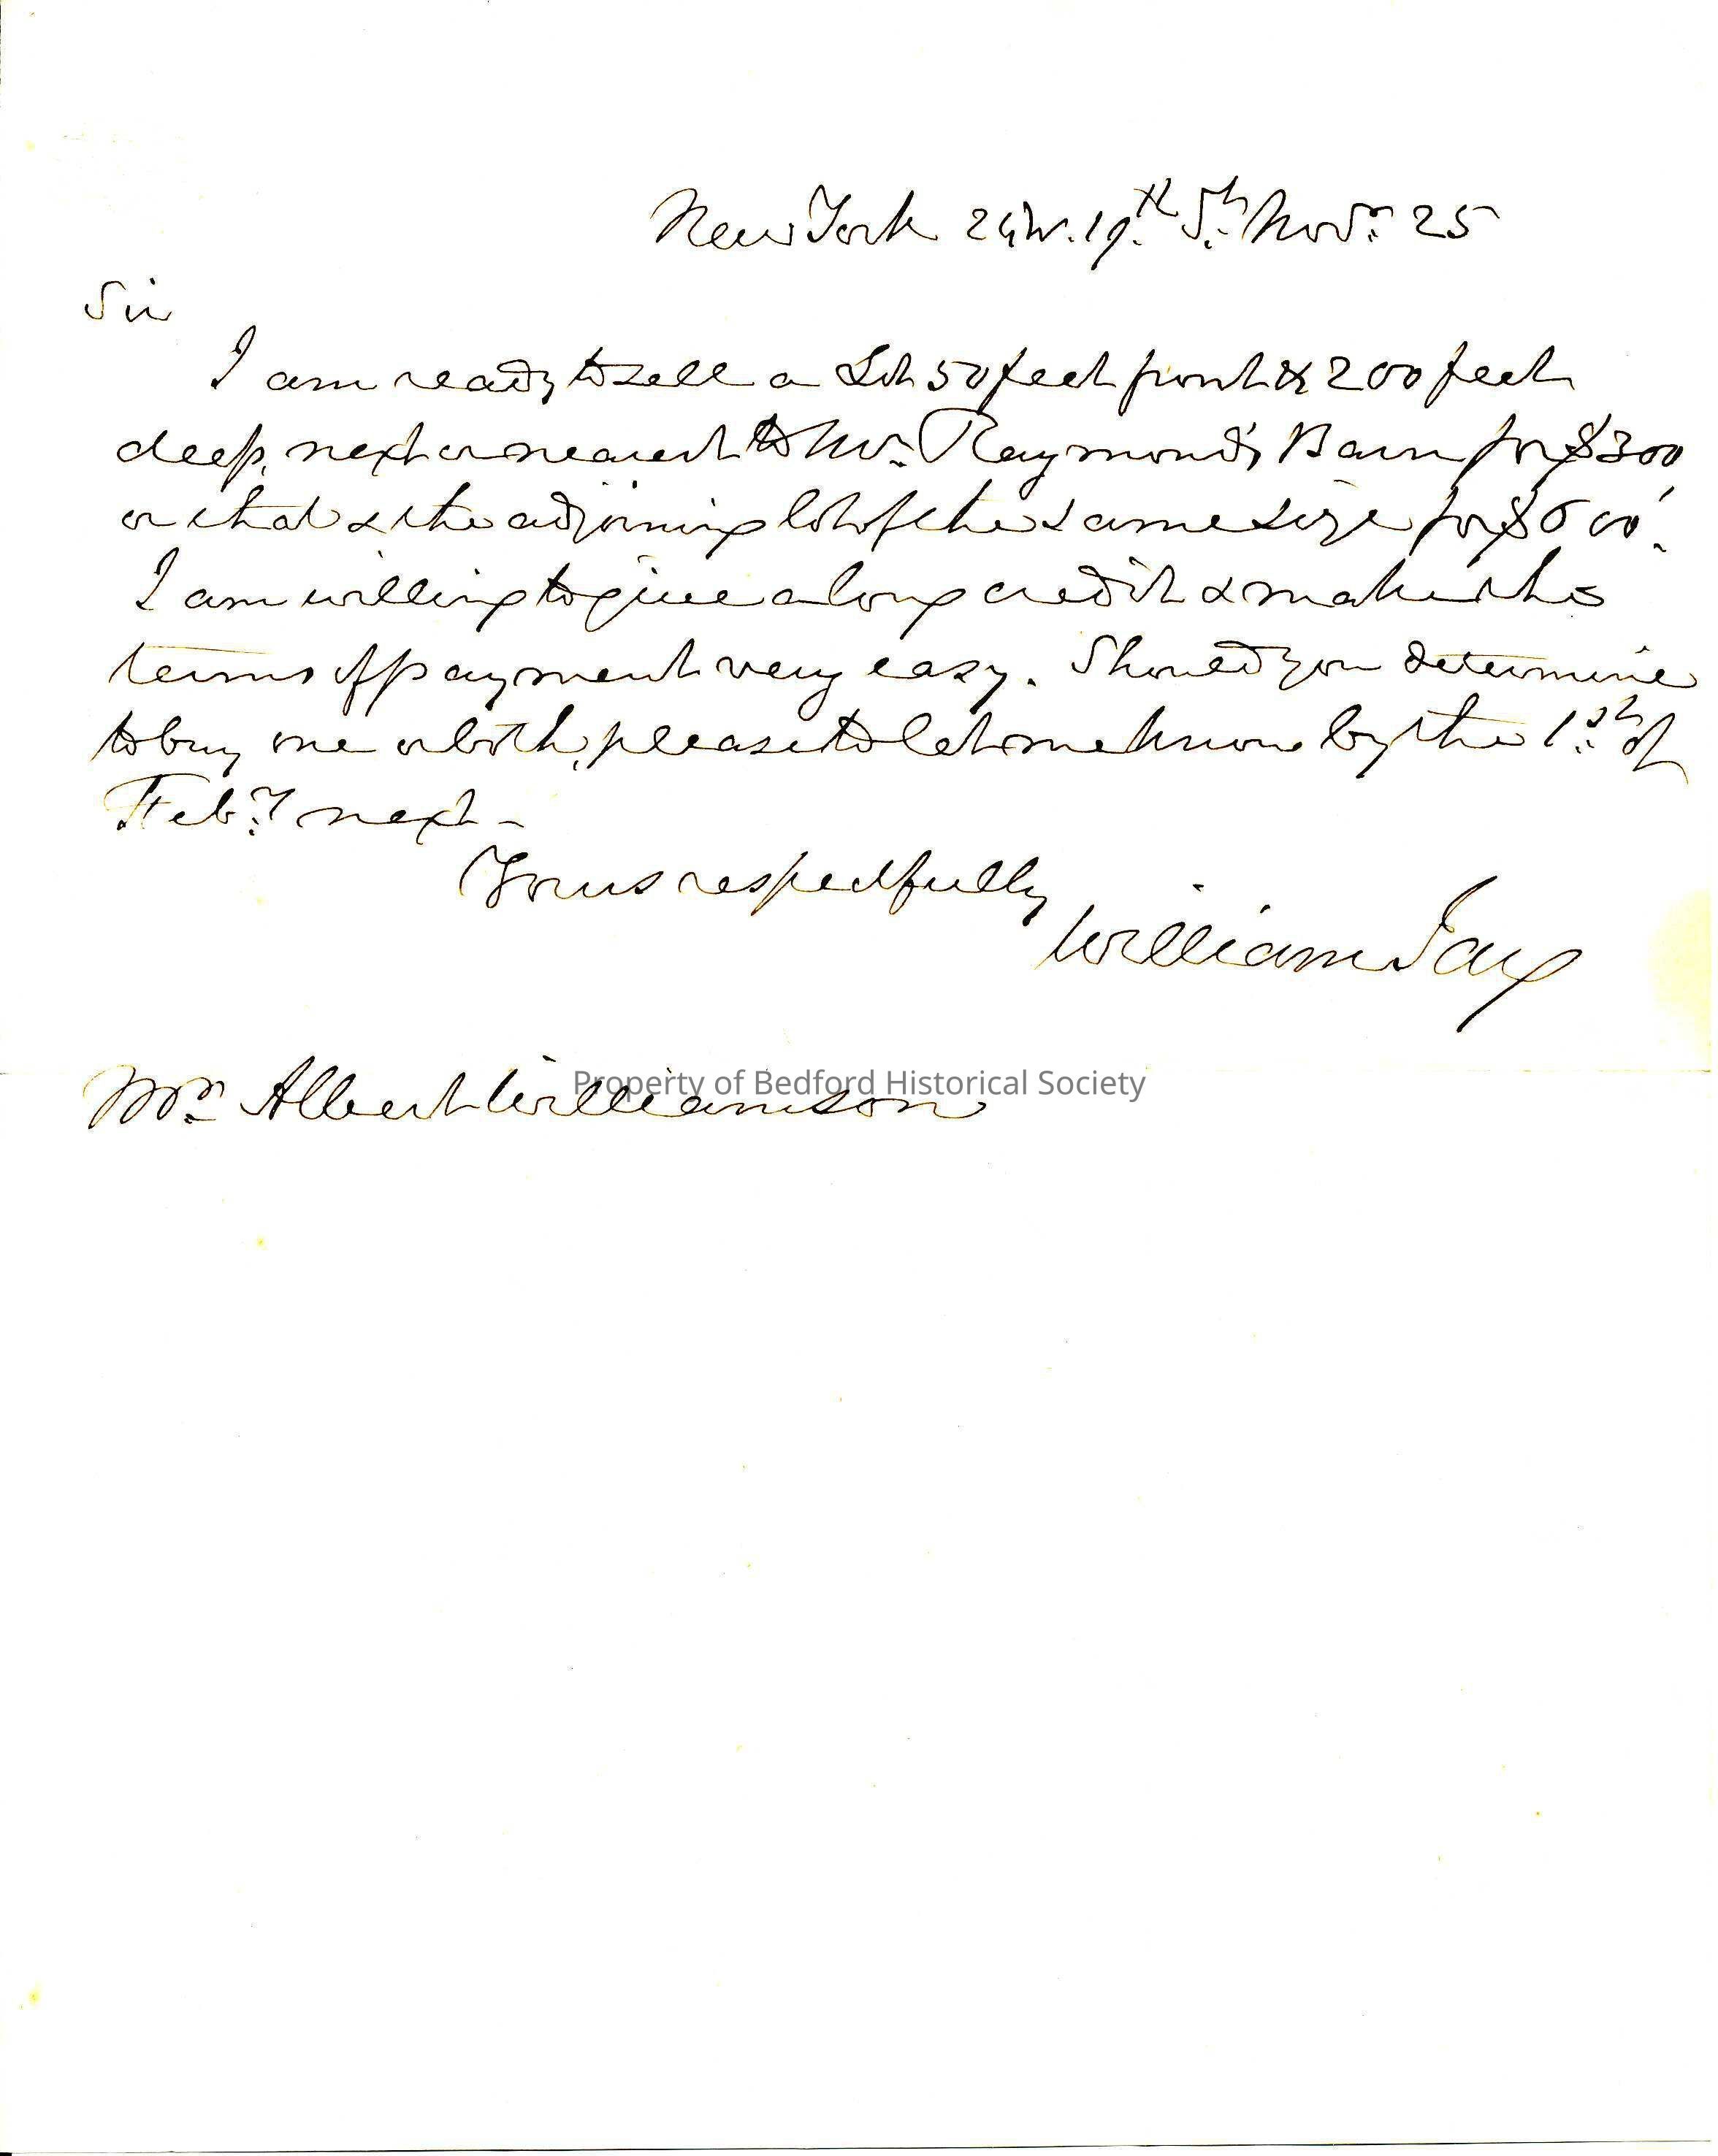 New York 24 W. 19.th St. Novr. 25
Sir
I am ready to sell a Lot 50 feet front & 200 feet
deep, next or nearest to Mr. Raymond's Barn for $300
or that & the adjoining lot of the same size for $600.
I am willing to give a long credit & make the
terms of payment very easy. Should you determine
to buy one or both, please to let me know by the 1.st of
Feb.y next -
Yours respectfully
William Jay
Mr. Albert Williamson
Property of Bedford Historical Society